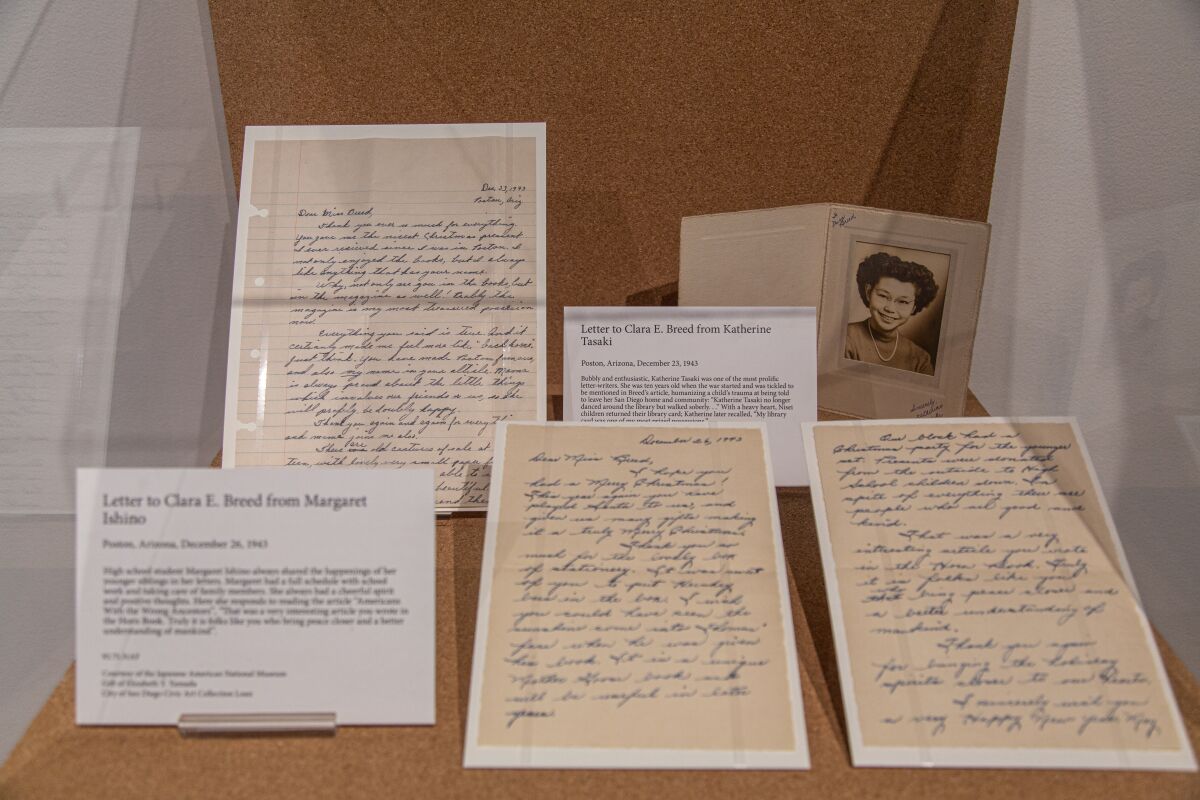 Dec 23, 1943
Poston, Ariz
Dear Miss Breed,
Thank you ever so much for everything.
You gave me the nicest Christmas present
I ever recieved since I was in Poston. I
not only enjoyed the books, but I always
like anything that has your name.
Why, not only see you in the books, but
in the magazine as well! Really the
magazine is my most treasured possession
now.
Everything you said is true. And it
certainly made me feel more like, "back home".
Just think. You have made Poston famous,
and also my name in your article. Mama
is always proud about the little things
which involves our friends or us, so she
will be doubly happy.
Thank you again and again for every
and mama
There are old
teen, with lovely very small
able to
beautiful
and the
To
Miss Breed
Sincerely
Katherine
Letter to Clara E. Breed from Katherine
Tasaki
Poston, Arizona, December 23, 1943
Bubbly and enthusiastic, Katherine Tasaki was one of the most prolific
letter-writers. She was ten years old when the war started and was tickled to
be mentioned in Breed's article, humanizing a child's trauma at being told
to leave her San Diego home and community: "Katherine Tasaki no longer
danced around the library but walked soberly. . ." With a heavy heart, Nisei
children returned their library card; Katherine later recalled, "My library
card was one of my most prized possessions."
Letter to Clara E. Breed from Margaret
Ishino
Poston, Arizona, December 26, 1943
High school student Margaret Ishino always shared the happenings of her
younger siblings in her letters. Margaret had a full schedule with school
work and taking care of family members. She always had a cheerful spirit
and positive thoughts. Here she responds to reading the article "Americans
With the Wrong Ancestors". "That was a very interesting article you wrote in
the Horn Book. Truly it is folks like you who bring peace closer and a better
understanding of mankind".
Courtesy of the Japanese American National Museum
Gift of Elizabeth Y. Yamada
City of San Diego Civic Art Collection Loan
December 26, 1943
Dear Miss Breed,
I hope you
had a Merry Christmas!
This year again you have
played Santa to us, and
given us many gifts making
it a truly Merry Christmas.
Thank you so
much for the lovely box
of stationery. It was sweet
of you to put Hershey
bars in the box. I wish
you could have seen the
sunshine come into Thomas'
face when he was given
his book. It is a unique
Mother Goose book and
will be useful in later
years.
Our block had a
Christmas party for the younger
set. Presents were donated
from the outside to High
School children down. In
spite of everything there are
people who are good and
kind.
That was a very
interesting article you wrote
in the Horn Book. Truly
it is folks like you
that bring peace closer and
a better understanding of
mankind.
Thank you again
for bringing the holiday
spirits closer to our hearts.
I sincerely wish you
a very Happy New Year. May